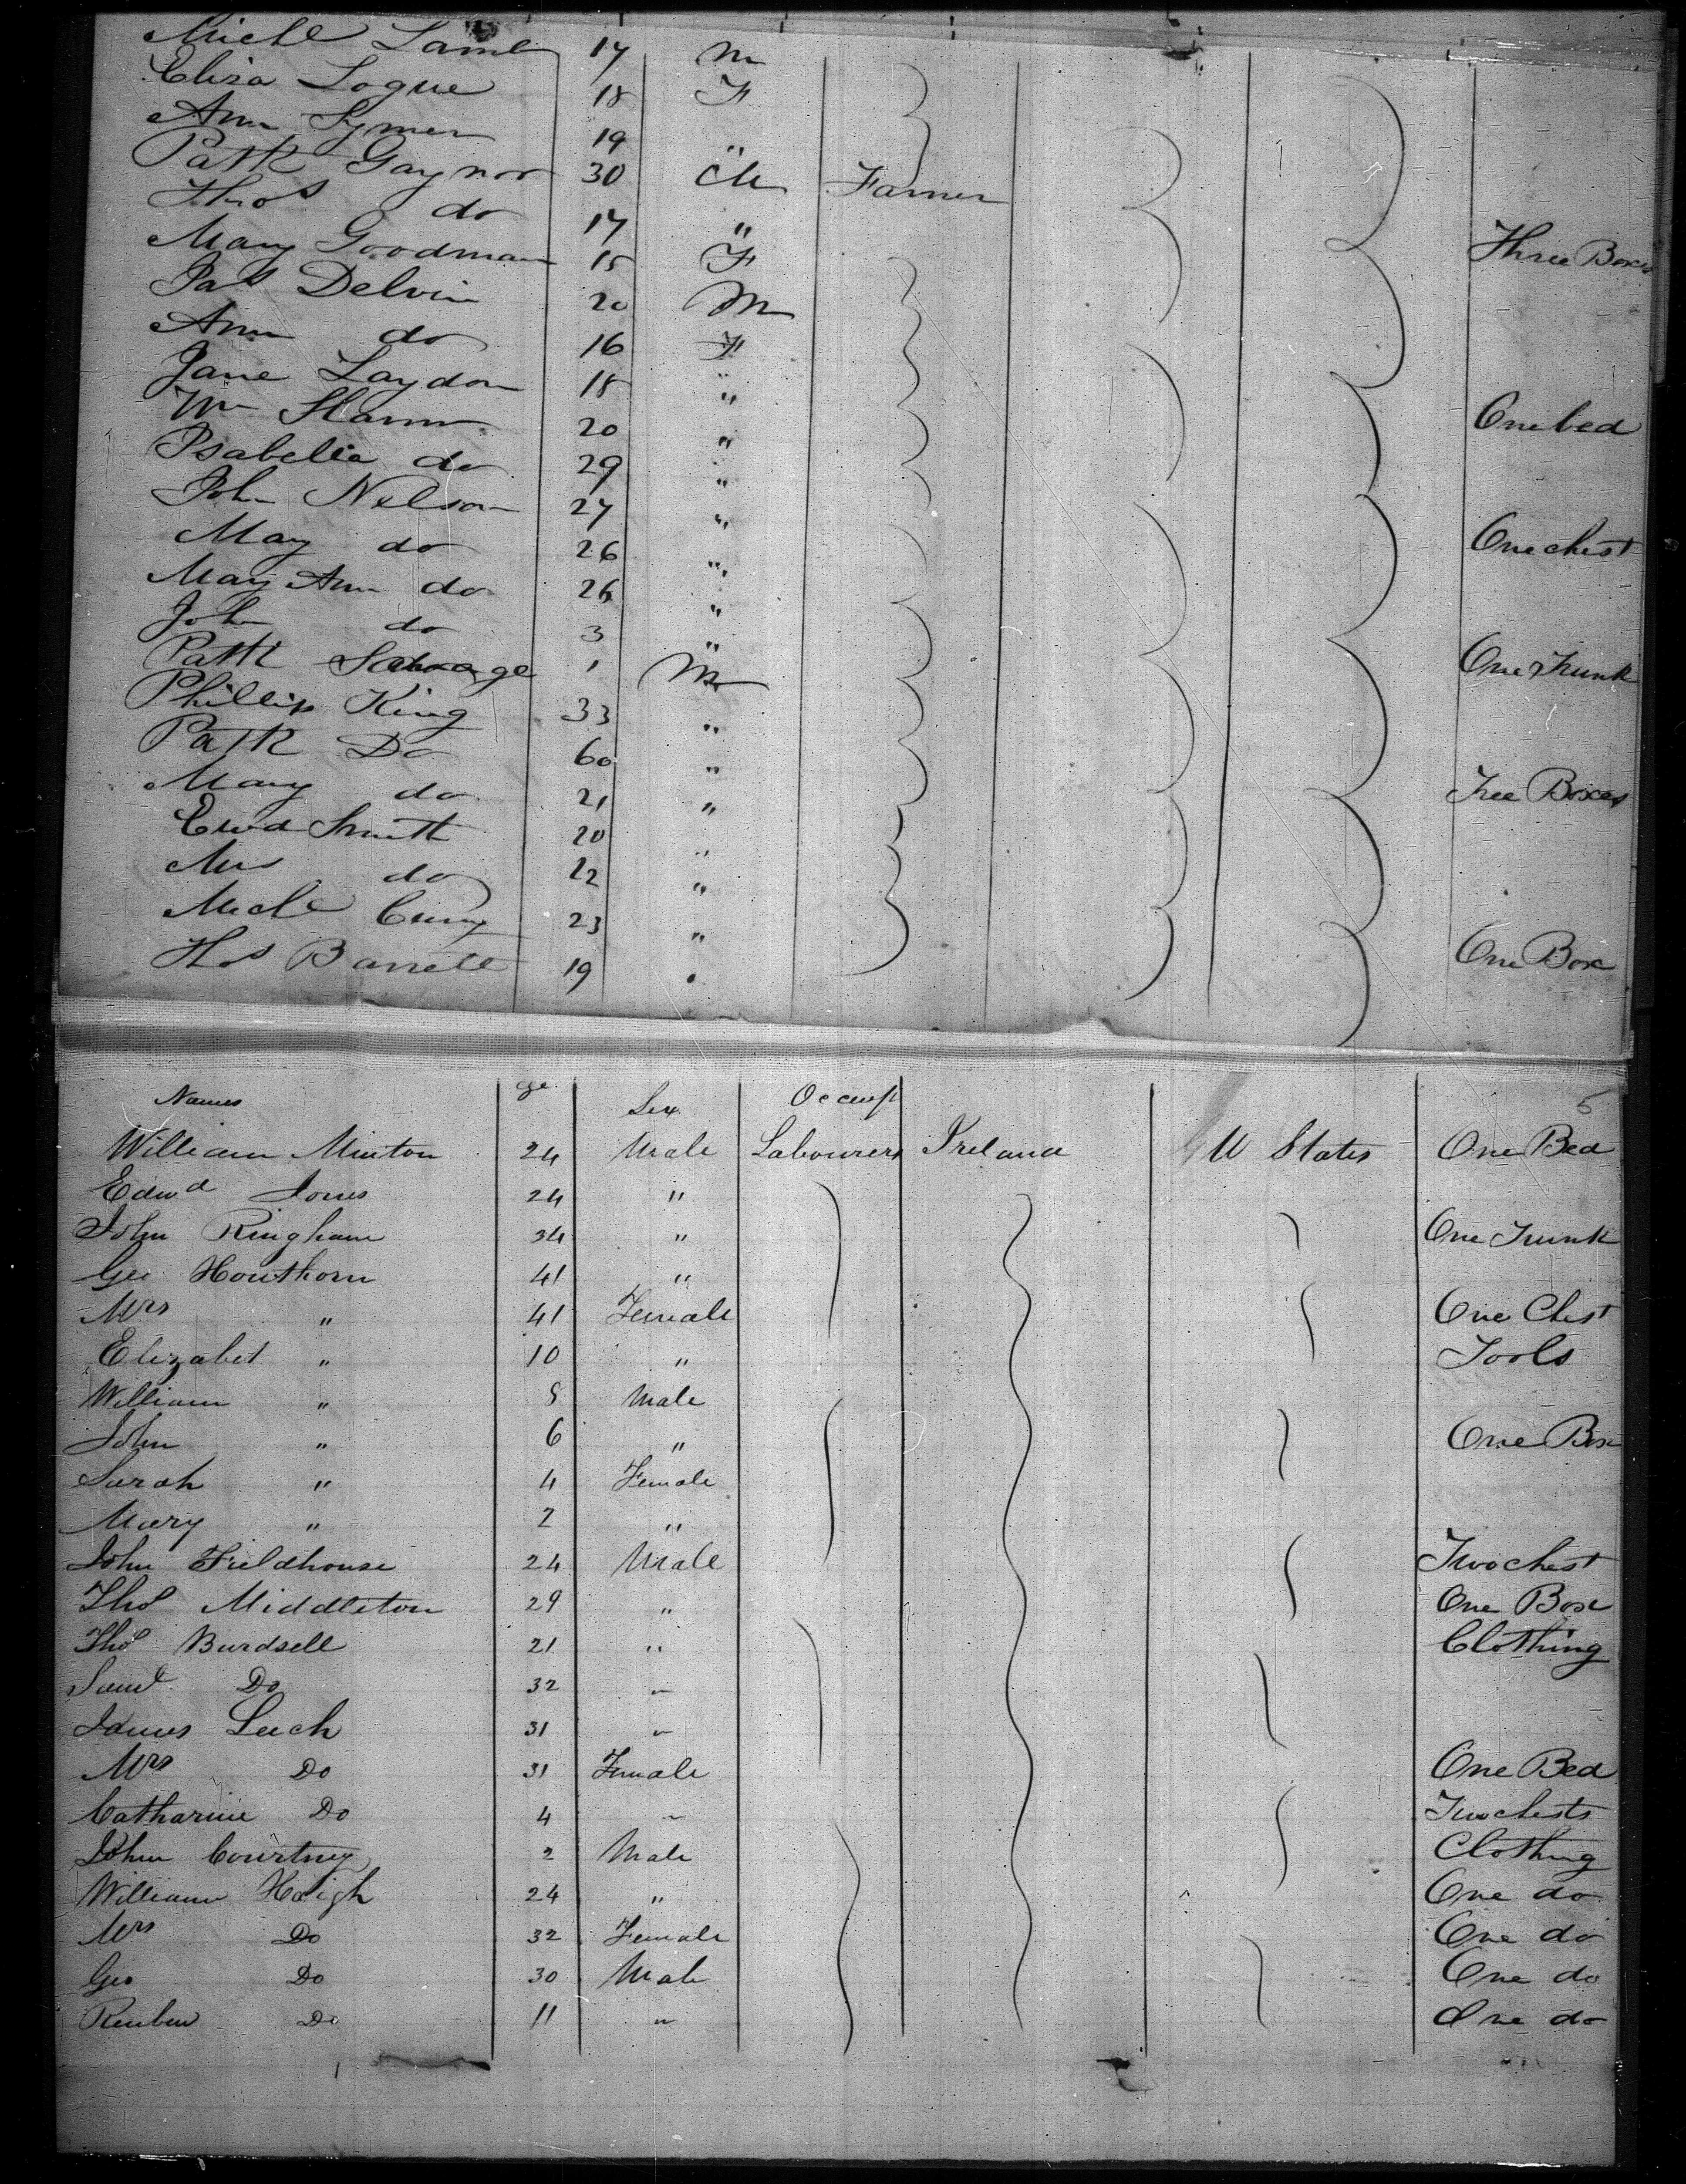 Michl Lamb 17 M
Eliza Logue 18 F
Ann Symen 19 "
Patk Gaynor 30 M Farmer
Thos do 17 "
Mary Goodman 15 F Three Boxes
Jas Delvin 20 M
Ann do 16 F
Jane Laydon 18 "
Wm Hamm 20 " One bed
Isabella do 29 "
John Nelson 27 "
May do 26 " One chest
May Ann do 26 "
John do 3 "
Patk Savage 1 M One Trunk
Phillip King 33 "
Patk Do 60 "
Mary do 21 " Tree Boxes
Edwd Smith 20 "
Mrs do 22 "
Michl 23 "
Thos Barrett 19 " One Box
Names ge Sex Occup 5
William Minton 24 Male Labourers Ireland U States One Bed
Edwd Jones 24 "
John Ringham 34 " One Trunk
Geo Houthorn 41 "
Mrs " 41 Female One Chest
Elizabet " 10 " Tools
William " 8 Male
John " 6 " One Box
Sarah " 4 Female
Mary " 2 "
John Fieldhouse 24 Male Two chest
Thos Middleton 29 " One Box
Thos Burdsell 21 " Clothing
Saml Do 32 "
James Leech 31 "
Mrs Do 31 Female One Bed
Catharine Do 4 " Two chests
John Courtney 2 Male Clothing
William Haigh 24 " One do
Mrs Do 32 Female One do
Geo Do 30 Male One do
Reuben Do 11 " One do